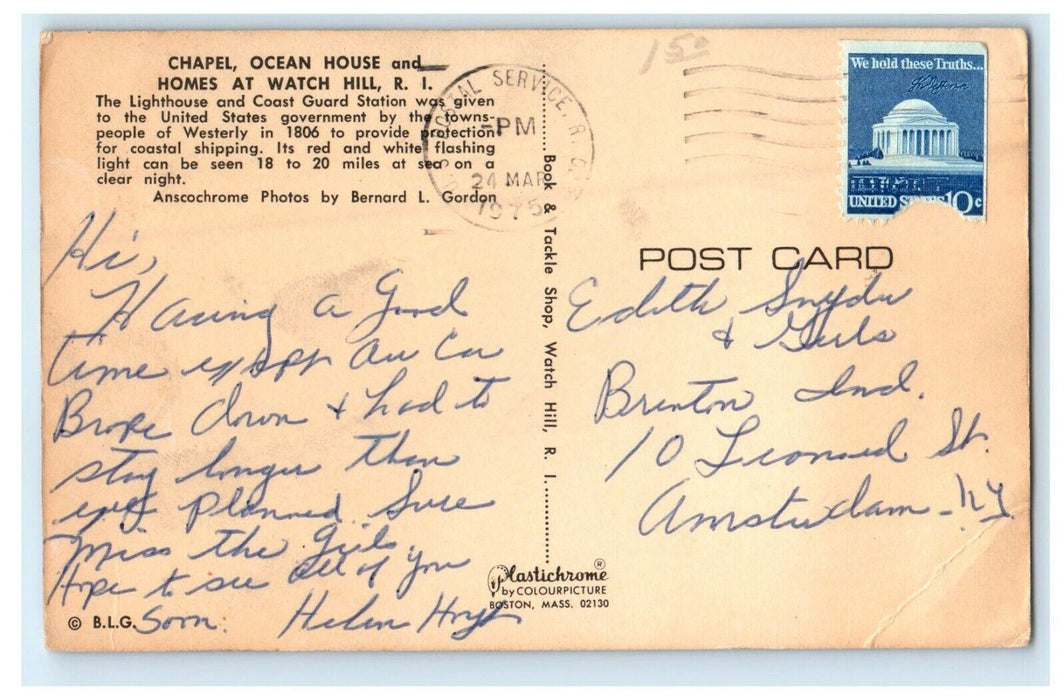 CHAPEL, OCEAN HOUSE and
HOMES AT WATCH HILL, R. I.
The Lighthouse and Coast Guard Station was given
to the United States government by the towns-
people of Westerly in 1806 to provide protection
for coastal shipping. Its red and white flashing
light can be seen 18 to 20 miles at sea on a
clear night.
Anscochrome Photos by Bernard L. Gordon
Hi,
Having a Good
time except our Car
Broke down & had to
stay longer than
we planned. Sure
Miss the Girls.
Hope to see all of you
Soon.
Helen Hoyt
© B.L.G.
Book & Tackle Shop, Watch Hill, R. I.
Plastichrome ®
by COLOURPICTURE
BOSTON, MASS. 02130
POSTAL SERVICE, R.I.
PM
24 MAR
1975
15⁰
We hold these Truths...
UNITED STATES 10c
POST CARD
Edith Snyder
& Girls
Brenton Ind.
10 Leonard St.
Amsterdam - NY